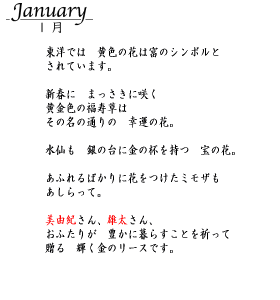 January
1月
東洋では　黄色の花は富のシンボルと
されています。
新春に　まっさきに咲く
黄金色の福寿草は
その名の通りの　幸運の花。
水仙も　銀の台に金の杯を持つ　宝の花。
あふれるばかりに花をつけたミモザも
あしらって。
美由紀さん、雄太さん、
おふたりが　豊かに暮らすことを祈って
贈る　輝く金のリースです。